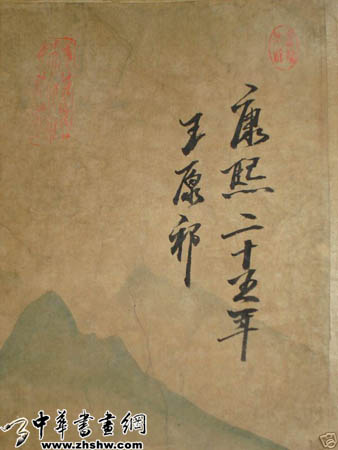 康熙二十五年
王原祁
中華書畫網
www.zhshw.com